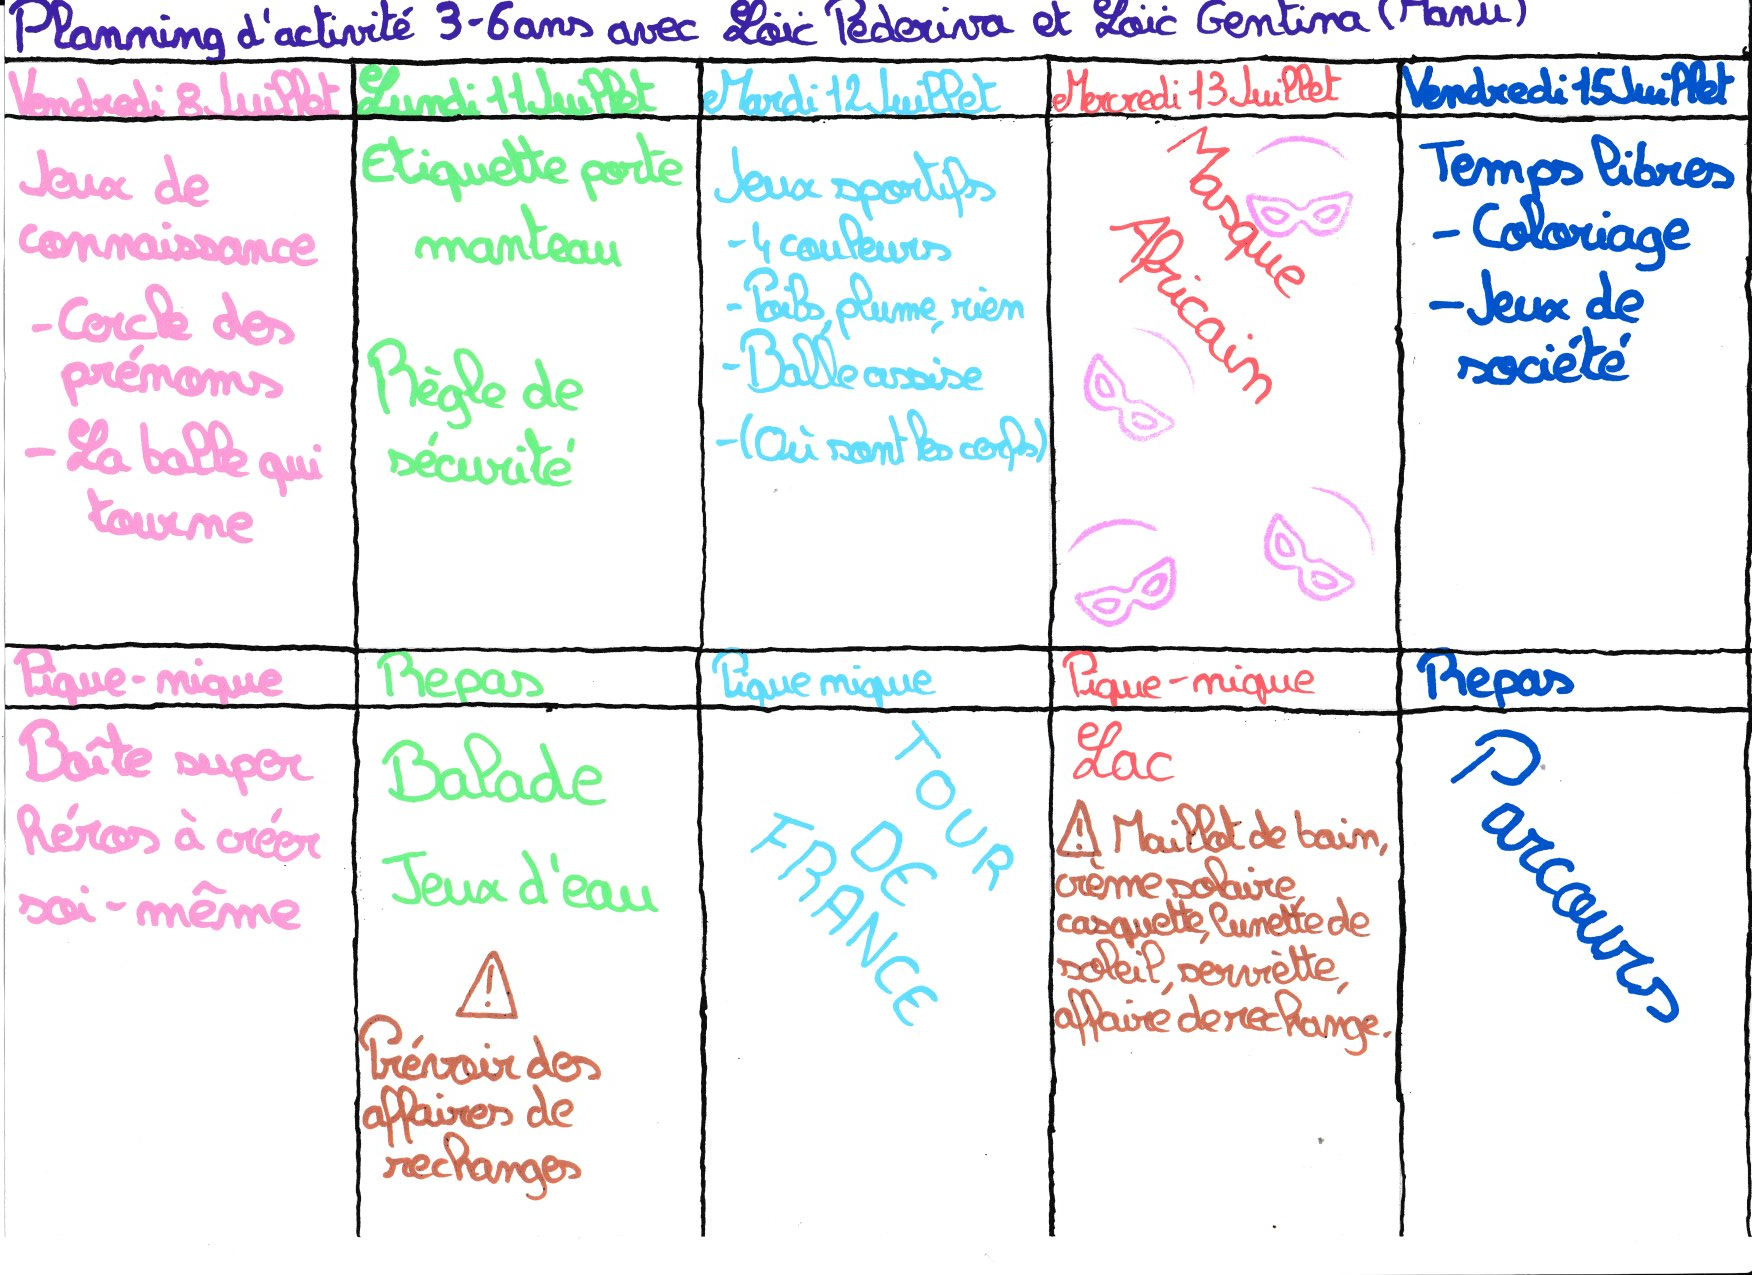 Planning d'activité 3-6ans avec Loïc Pederiva et Loïc Gentina (Manu)
Vendredi 8 Juillet
Lundi 11 Juillet
Mardi 12 Juillet
Mercredi 13 Juillet
Vendredi 15 Juillet
Jeux de
connaissance
- Cercle des
prénoms
- La balle qui
tourne
Etiquette porte
manteau
Règle de
sécurité
Jeux sportifs
- 4 couleurs
- Poils, plume, rien
- Balle assise
- (Où sont les cerfs)
Masque
Africain
Temps libres
- Coloriage
- Jeux de
société
Pique-nique
Repas
Pique nique
Pique-nique
Repas
Boîte super
héros à créer
soi-même
Balade
Jeux d'eau
!
Prévoir des
affaires de
rechanges
TOUR
DE
FRANCE
Lac
! Maillot de bain,
crème solaire,
casquette, lunette de
soleil, serviètte,
affaire de rechange.
Parcours